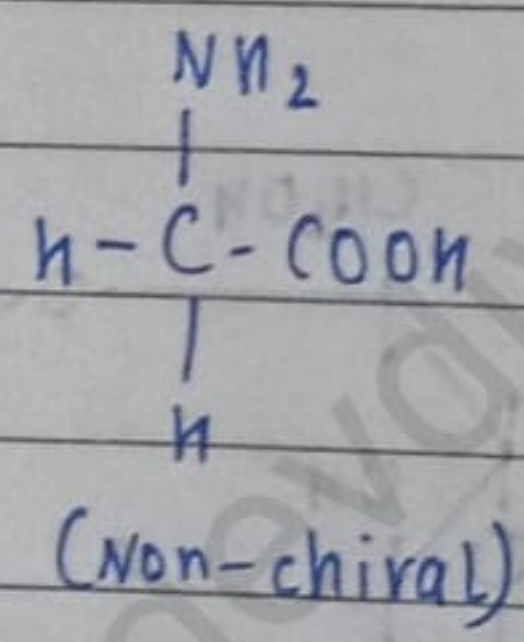 NH₂
|
H-C-COOH
|
H
(Non-chiral)